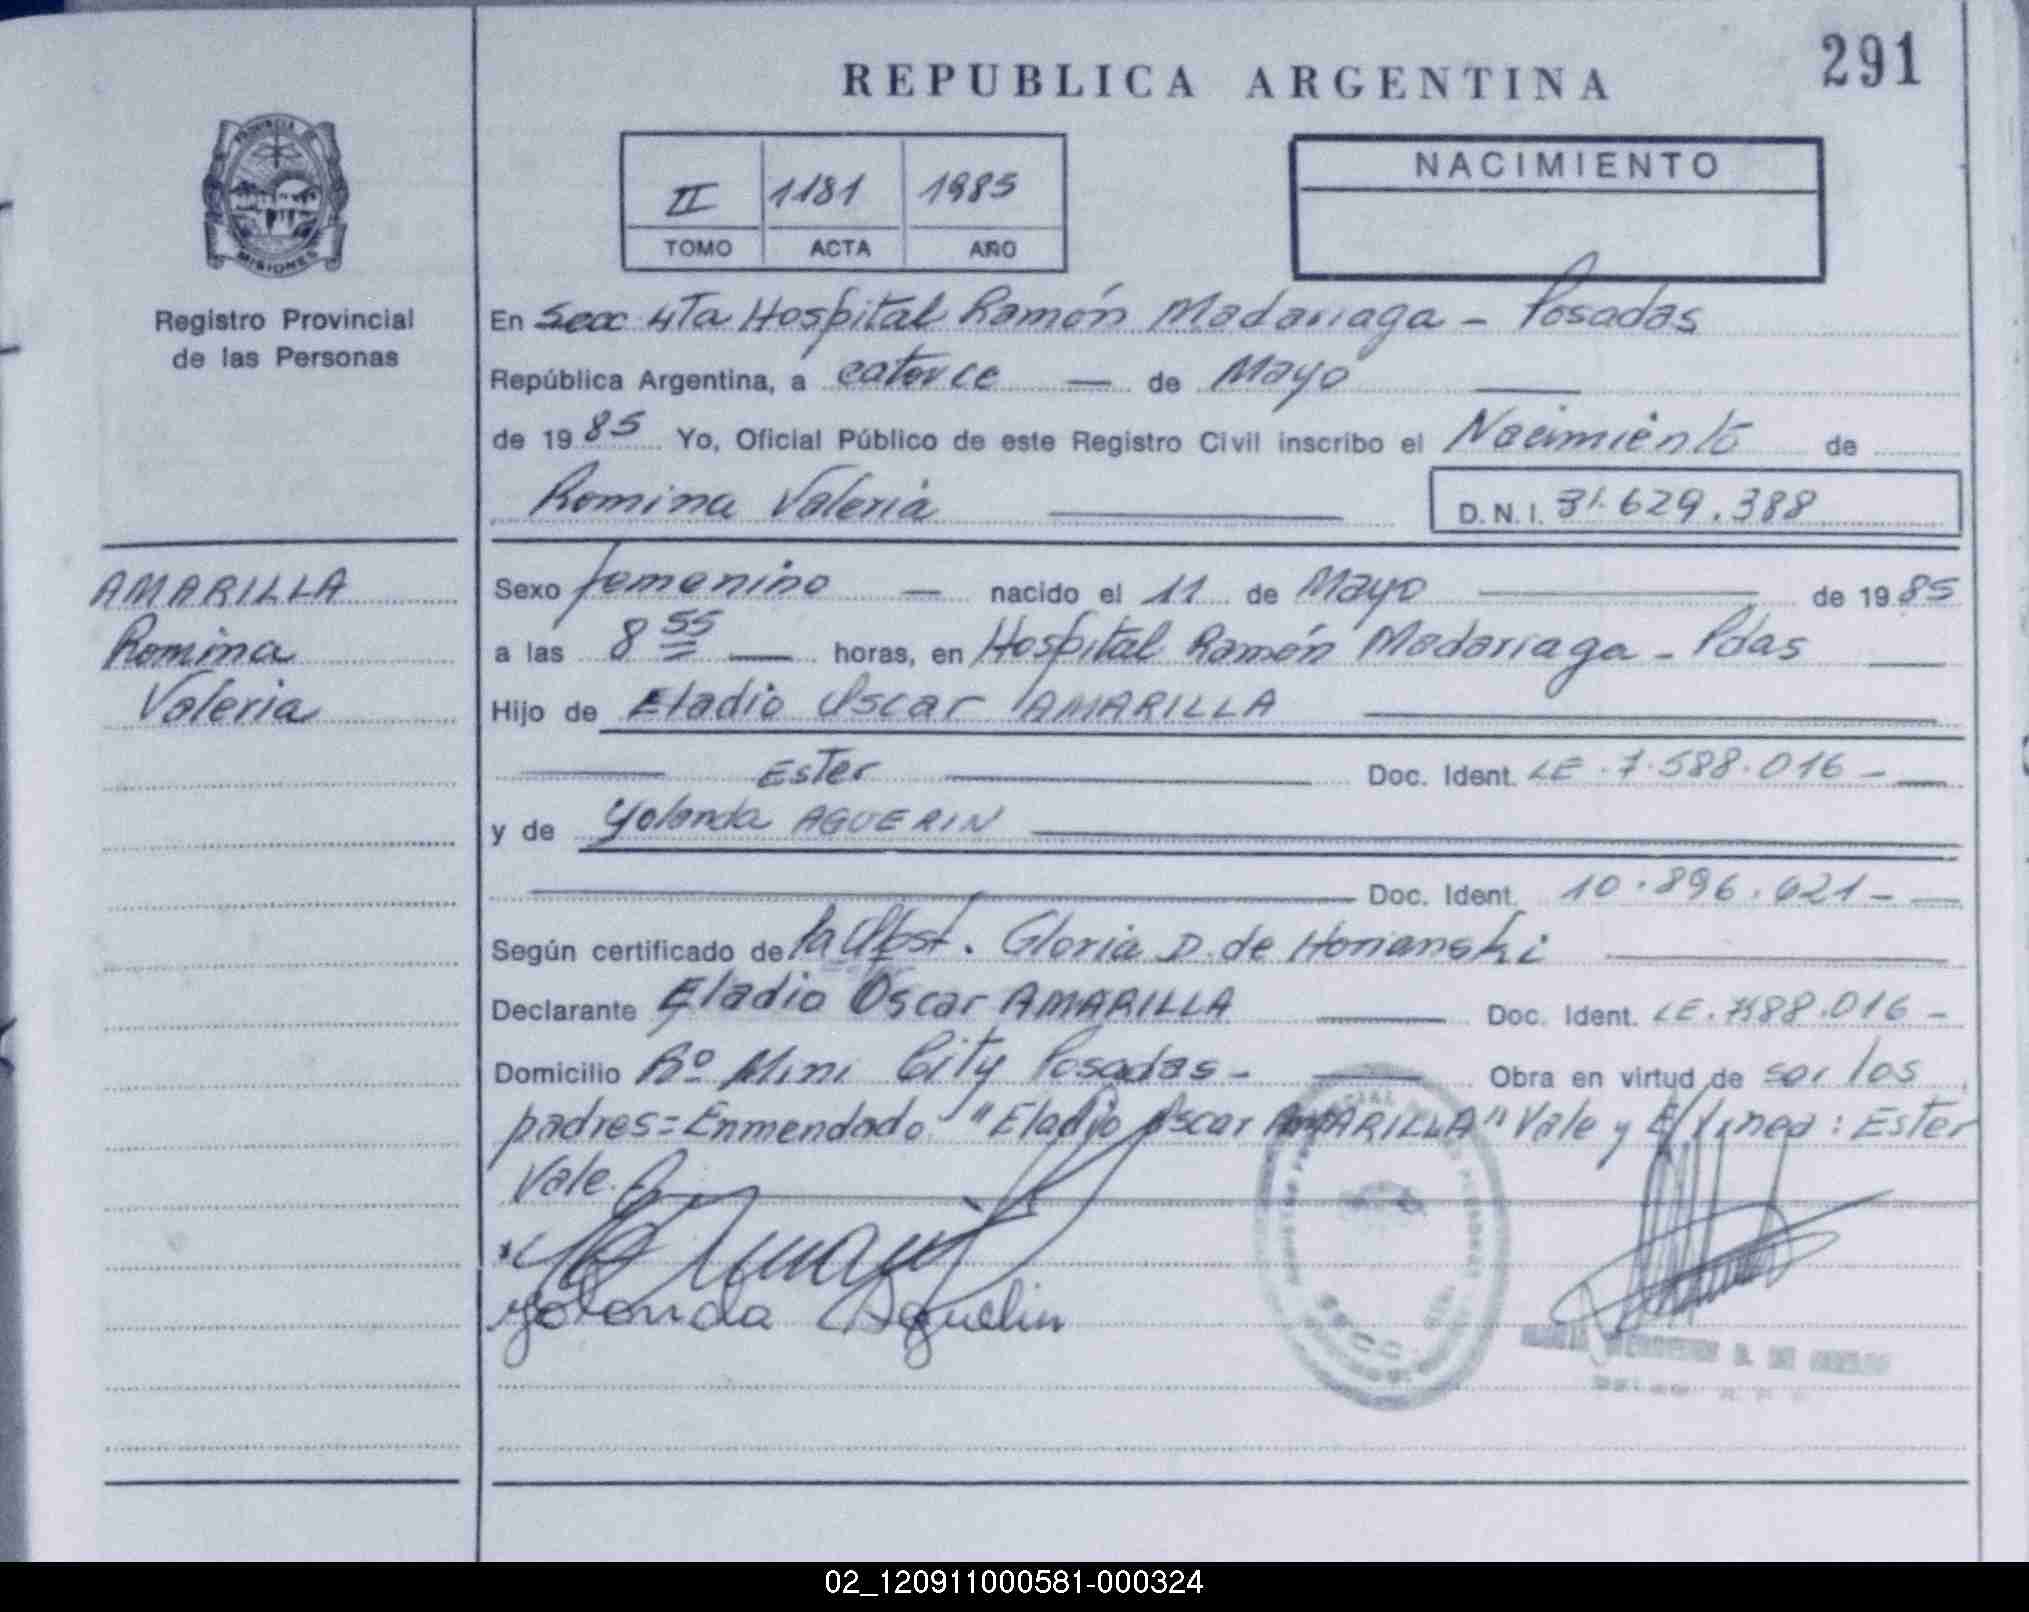 291
REPUBLICA ARGENTINA
PROVINCIA DE
MISIONES
Registro Provincial
de las Personas
II 1181 1985
TOMO ACTA AÑO
NACIMIENTO
En Secc 4Ta Hospital Ramón Madariaga - Posadas
República Argentina, a catorce — de Mayo
de 1985 Yo, Oficial Público de este Registro Civil inscribo el Nacimiento de
Romina Valeria
D.N.I. 31.629.388
AMARILLA
Romina
Valeria
Sexo femenino — nacido el 11 de Mayo de 1985
a las 8 55 — horas, en Hospital Ramón Madariaga - Pdas
Hijo de Eladio Oscar AMARILLA
Ester Doc. Ident. LE. 7.588.016 -
y de Yolanda AGUERIN
Doc. Ident. 10.896.621 -
Según certificado de la Obst. Gloria D. de
Declarante Eladio Oscar AMARILLA Doc. Ident. LE. 7588.016 -
Domicilio Bº Mini City Posadas - Obra en virtud de ser los
padres = Enmendado "Eladio Oscar AMARILLA" Vale y E/linea: Ester
Vale.
Yolanda Aguelin
SECC.
02_120911000581-000324